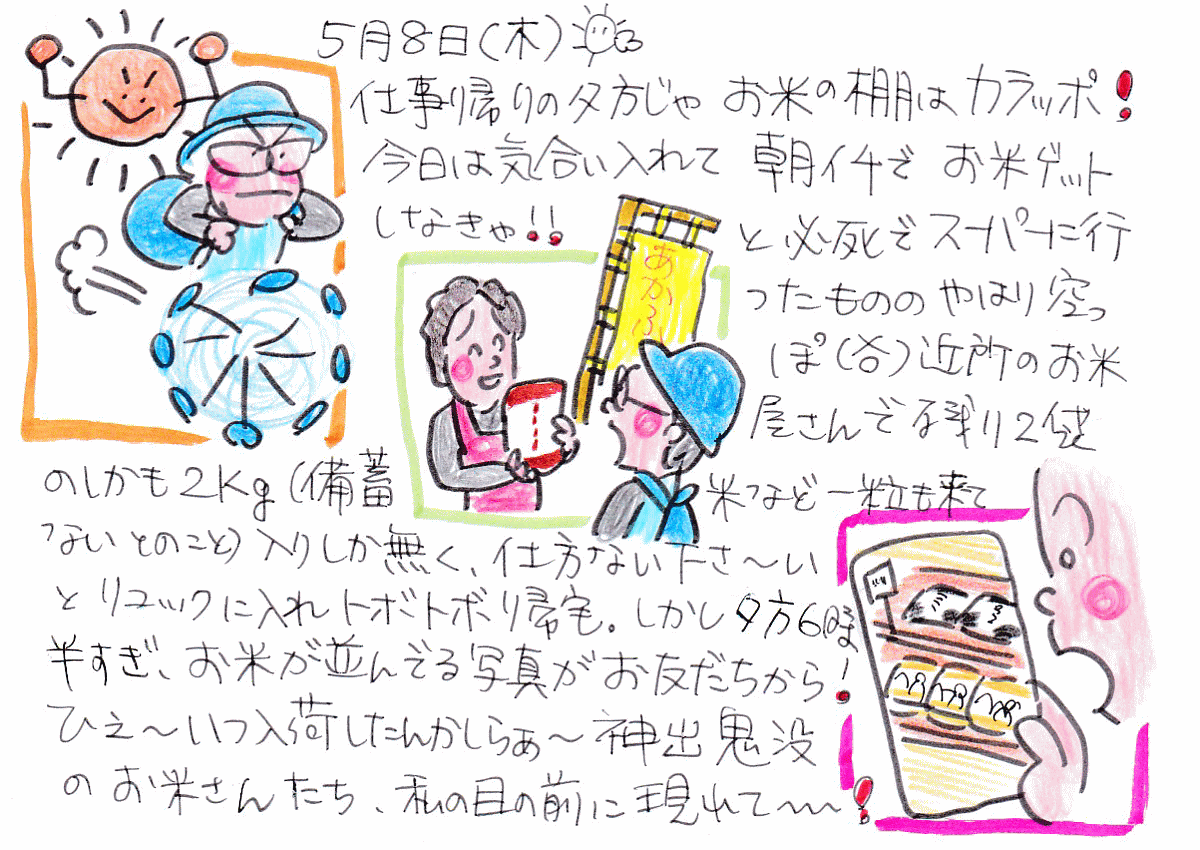 5月8日(木)
仕事帰りの夕方じゃ お米の棚はカラッポ!
今日は気合い入れて 朝イチで お米ゲット
しなきゃ!! と必死でスーパーに行
ったものの やはり空っ
ぽ(谷)近所のお米
屋さんで残り2袋
のしかも2Kg(備蓄 米など一粒も来て
ないとのこと)入りしか無く、仕方ない下さ〜い
とリュックに入れトボトボ帰宅。しかし夕方6時
半すぎ、お米が並んでる写真がお友だちから!
ひえ〜いつ入荷したんかしらぁ〜神出鬼没
のお米さんたち、私の目の前に現れて〜〜!
あかふ